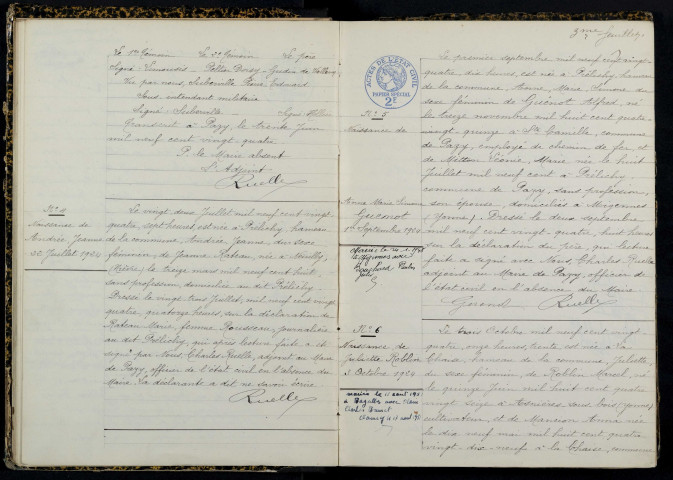 Le 1er Témoin Le 2e Témoin Le père
Signé
Vu par nous, René
Sous intendant militaire
Signé
Transcrit à Pazy, le trente Juin
mil neuf cent vingt quatre
P. le Maire absent
L'Adjoint
Ruelle
No 4
Naissance de
Andrée Jeanne
22 Juillet 1924
Le vingt deux Juillet mil neuf cent vingt
quatre, sept heures, est née à Prélichy, hameau
de la commune, Andrée, Jeanne, du sexe
féminin, de Jeanne Rateau, née à
(Nièvre), le treize mars mil neuf cent huit,
sans profession, domiciliée au dit Prélichy.
Dressé le vingt trois Juillet mil neuf cent vingt
quatre, quatorze heures, sur la déclaration de
Rateau Marie, femme Rousseau, journalière
au dit Prélichy, qui après lecture faite a
signé par Nous, Charles Ruelle, adjoint au Maire
de Pazy, officier de l'état civil en l'absence du
Maire. La déclarante a dit ne savoir écrire.
Ruelle
3me feuillet
ACTES DE L'ÉTAT CIVIL
PAPIER SPÉCIAL
2F
No 5
Naissance de
Anna Marie Simone
Guenot
1er Septembre 1924
Le premier septembre mil neuf cent vingt
quatre dix heures, est née à Prélichy, hameau
de la commune, Anna, Marie, Simone du
sexe féminin de Guenot Alfred, né
le treize novembre mil huit cent quatre
vingt quinze à Ste Camille, commune
de Pazy, employé de chemin de fer, et
de Léonie, Marie née le huit
Juillet mil neuf cent à Prélichy
commune de Pazy, sans profession,
son épouse, domiciliés à Migennes
(Yonne). Dressé le deux septembre
mil neuf cent vingt quatre, huit heures
sur la déclaration du père, qui lecture
faite a signé avec Nous, Charles Ruelle
adjoint au Maire de Pazy, officier de
l'état civil en l'absence du Maire
Ruelle
No 6
Naissance de
Juliette Roblin
3 Octobre 1924
Le trois Octobre mil neuf cent vingt-
quatre, onze heures, trente, est née à la
Chaise, hameau de la commune, Juliette,
du sexe féminin, de Roblin Marcel, né
le quinze Juin mil huit cent quatre
vingt seize à Asnières sous bois (Yonne)
cultivateur, et de Anna née
le dix neuf mai mil huit cent quatre
vingt-dix-neuf à la Chaise, commune